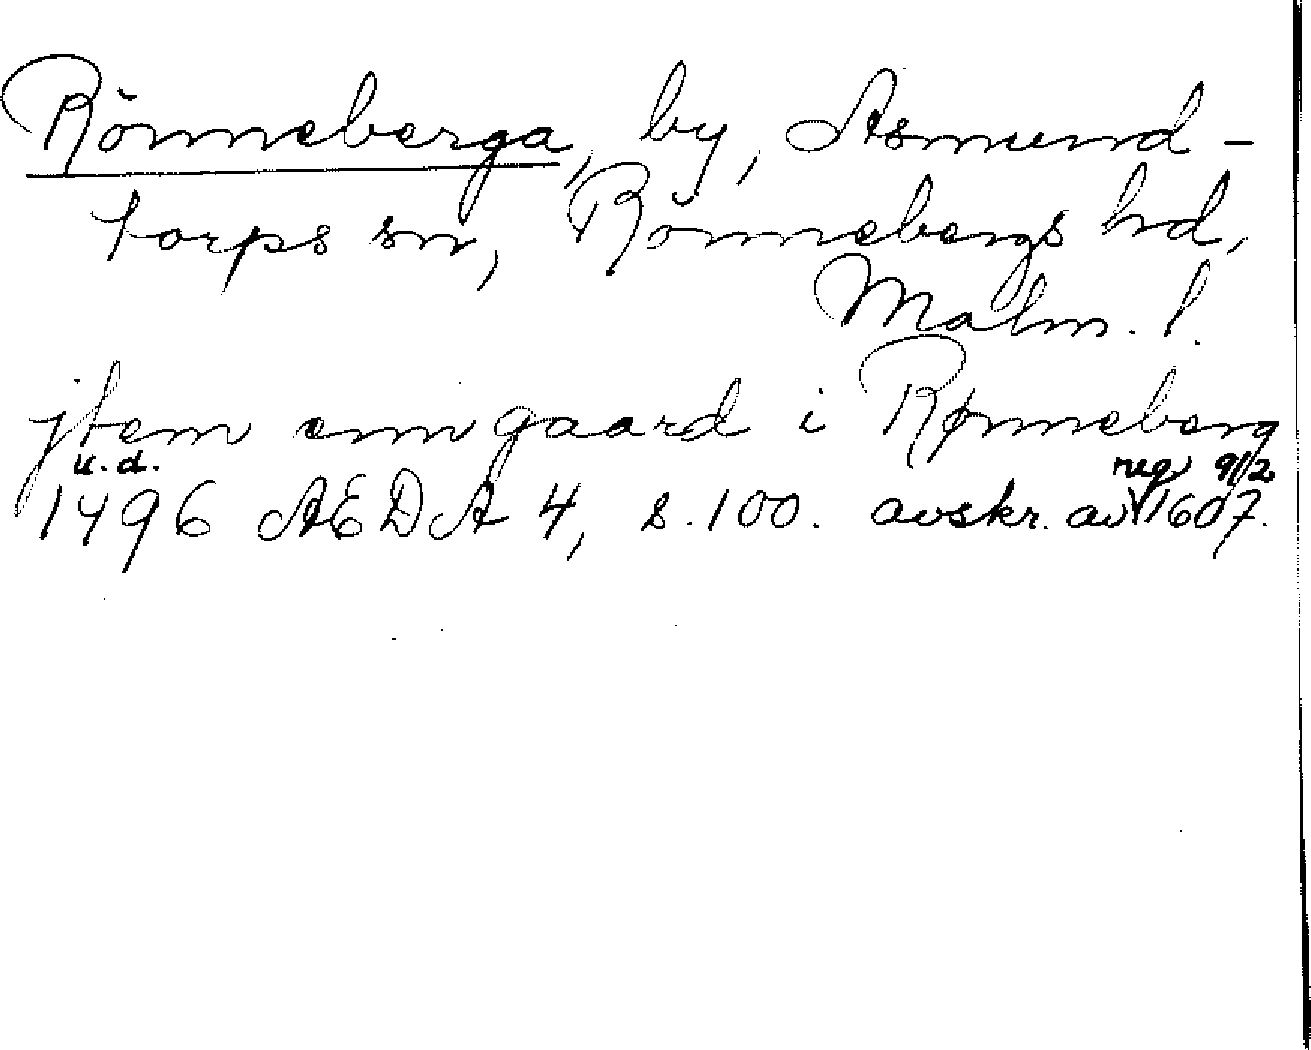 Rönneberga, by, Asmund-
torps sn, Rönnebergs hd,
Malm. l.
jtem enn gaard i Rønneberg
u.d. reg 9/2
1496 AEDA 4, s. 100. avskr. av 1607.